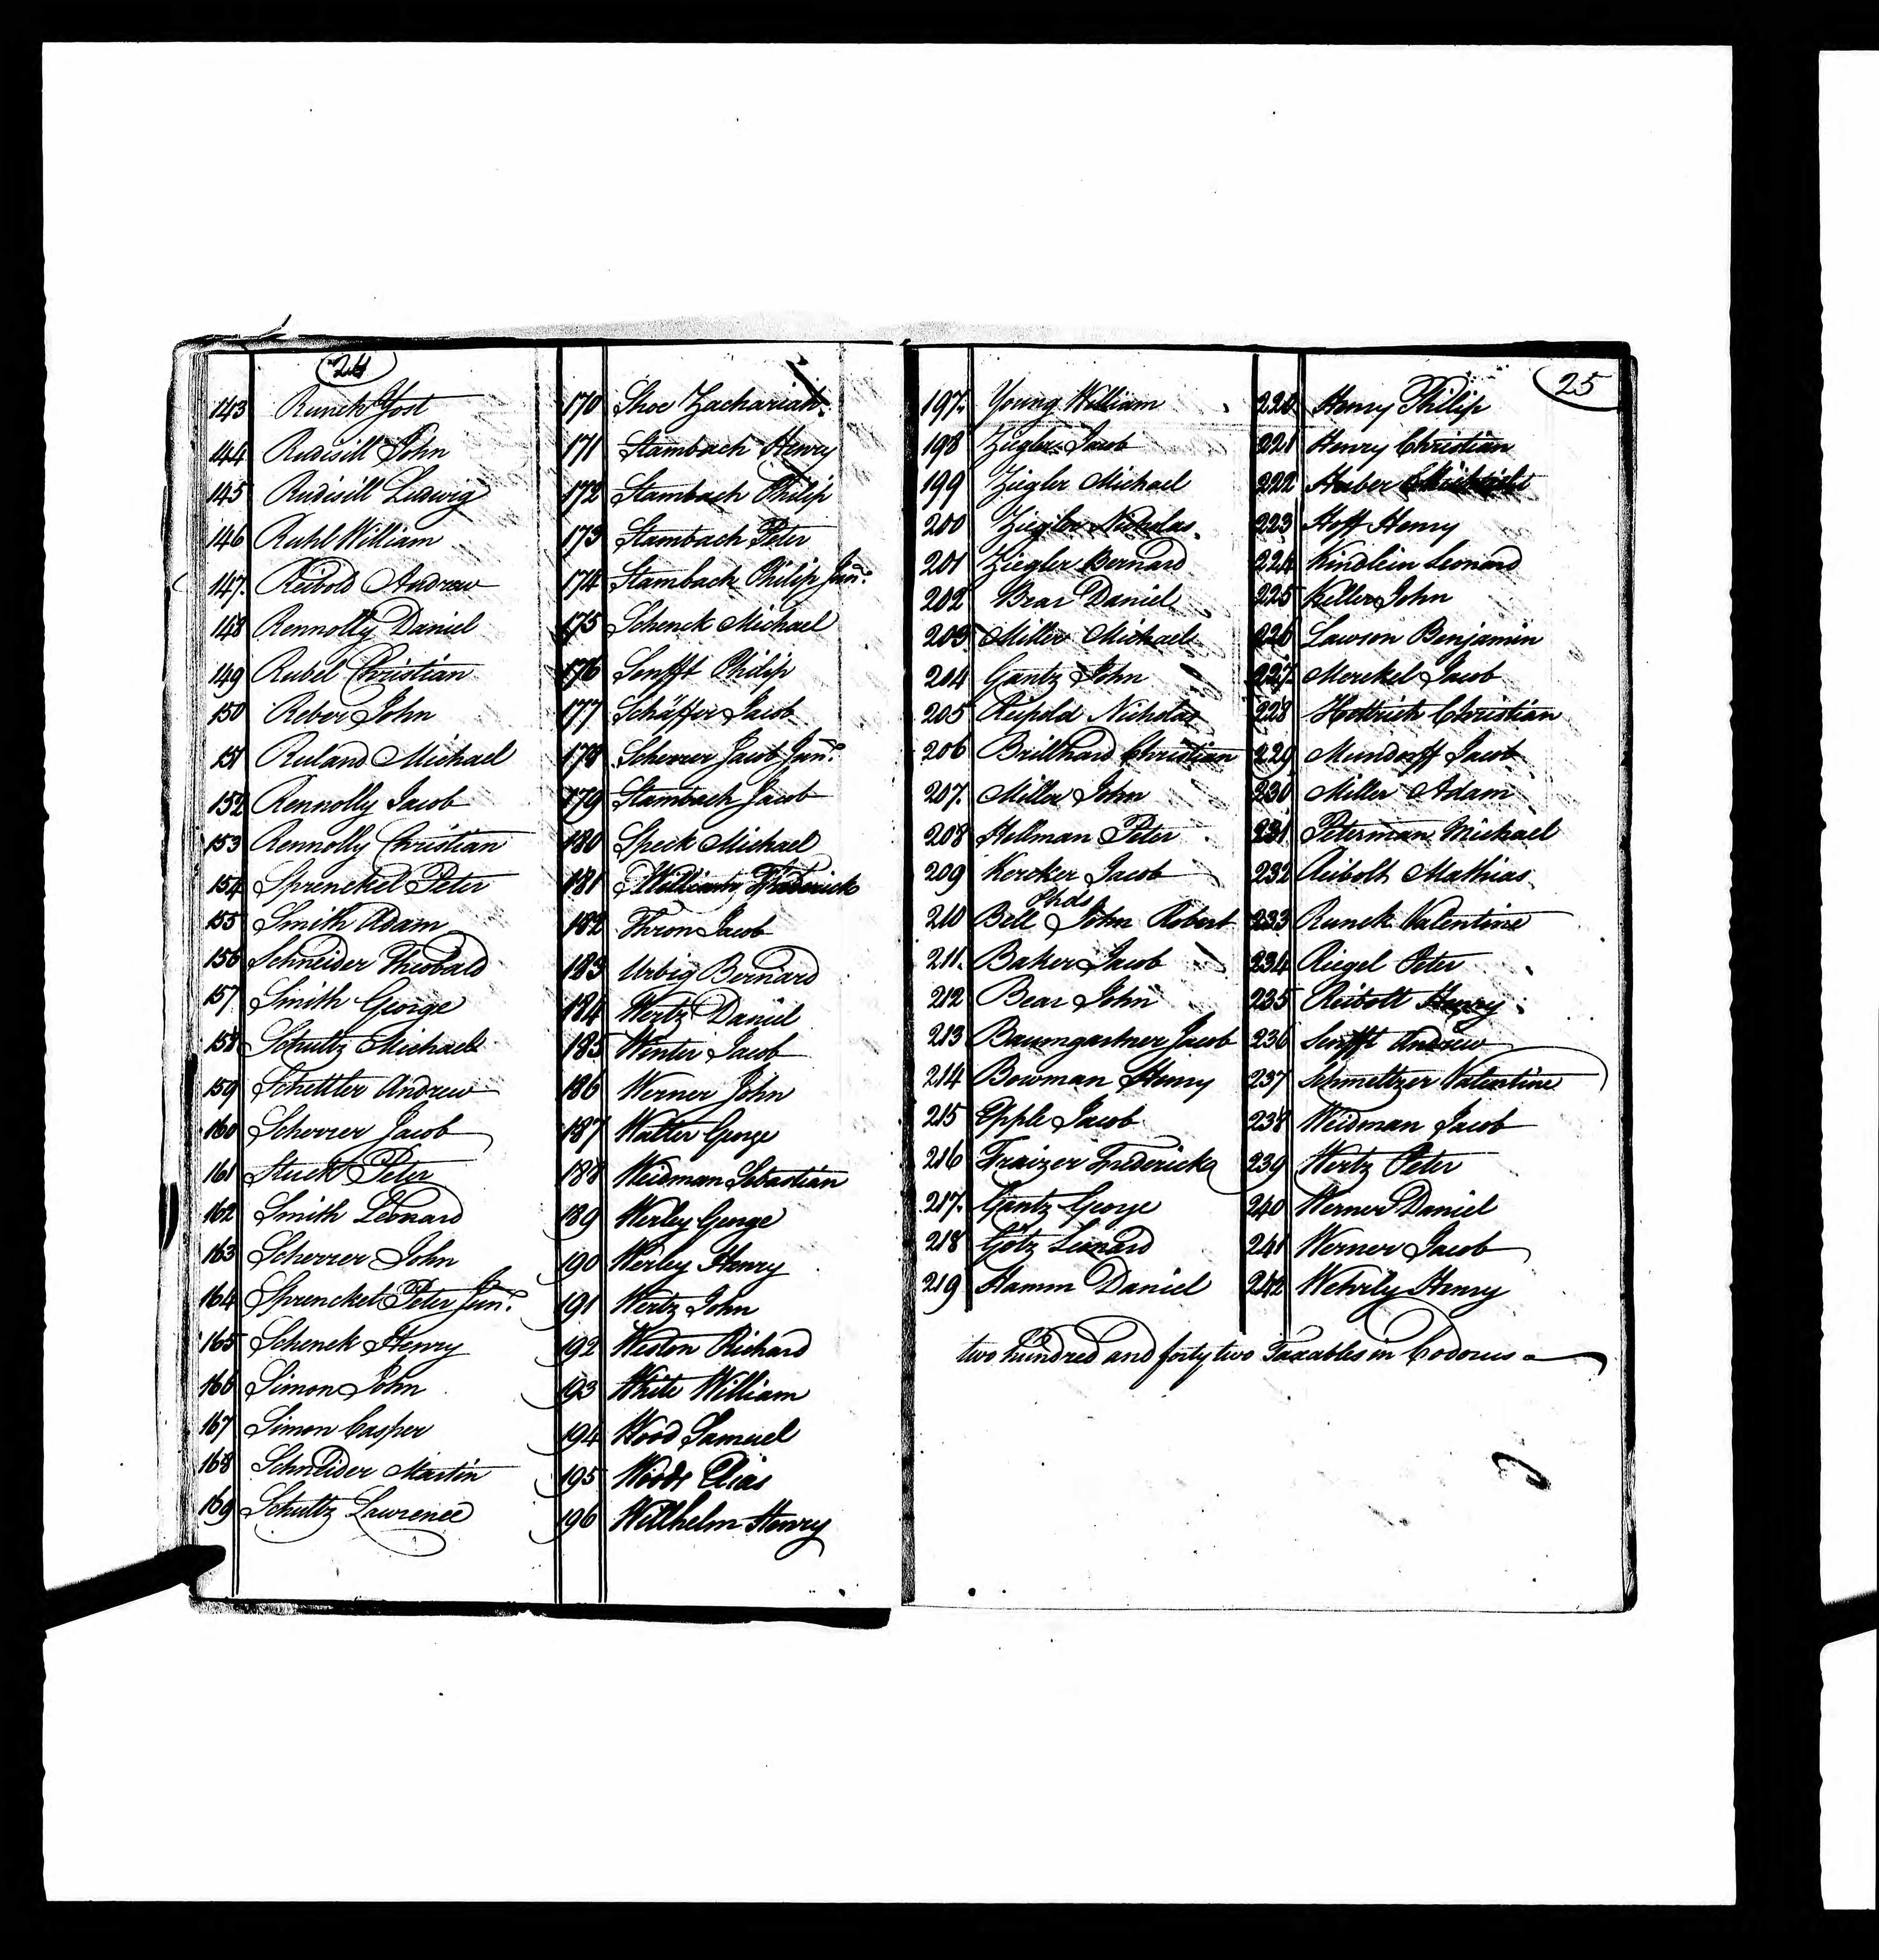 24
143 Runck Yost
144 Rudisill John
145 Rudisill Ludwig
146 Ruhl William
147. Reibold Andrew
148 Rennolly Daniel
149 Rubel Christian
150 Reber John
151 Ruland Michael
152 Rennolly Jacob
153 Rennolly Christian
154 Sprenckel Peter
155 Smith Adam
156 Schneider Theobald
157 Smith George
158 Schultz Michael
159 Schettler Andrew
160 Scherrer Jacob
161 Stuck Peter
162 Smith Leonard
163 Scherrer John
164 Sprenckel Peter Junr.
165 Schenck Henry
166 Simon John
167 Simon Casper
168 Schneider Martin
169 Schultz Lawrence
170 Shoe Zachariah.
171 Stambach Henry
172 Stambach Philip
173 Stambach Peter
174 Stambach Philip Junr.
175 Schenck Michael
176 Senfft Philip
177 Schäffer Jacob
178 Scherrer Jacob Junr.
179 Stambach Jacob
180 Speck Michael
181 Frederick
182 Thron Jacob
183 Urbig Bernard
184 Wertz Daniel
185 Winter Jacob
186 Werner John
187 Walter George
188 Weidman Sebastian
189 Werley George
190 Werley Henry
191 Wertz John
192 Weston Richard
193 White William
194 Wood Samuel
195 Woods Elias
196 Willhelm Henry
25
197. Young William
198 Ziegler Jacob
199 Ziegler Michael
200 Ziegler Nicholas
201 Ziegler Bernard
202 Brar Daniel
203 Miller Michael
204 Gantz John
205 Reipold Nicholas
206 Brillhard Christian
207. Miller John
208 Hellman Peter
209 Kercker Jacob
210 Bell John Robert
211. Baker Jacob
212 Bear John
213 Baumgartner Jacob
214 Bowman Henry
215 Epple Jacob
216 Fraizer Frederick
217. Gantz George
218 Götz Leonard
219 Hamm Daniel
220 Henry Phillip
221 Henry Christian
222 Huber
223 Hoff Henry
224 Kindlein Leonard
225 Keller John
226 Lawson Benjamin
227. Merckel Jacob
228 Hettrich Christian
229 Mundorff Jacob
230 Miller Adam
231 Peterman Michael
232 Reibolt Mathias
233 Runck Valentine
234 Riegel Peter
235 Reibolt Henry
236 Senfft Andrew
237 Schmeltzer Valentine
238 Weidman Jacob
239 Wertz Peter
240 Werner Daniel
241 Werner Jacob
242 Wehrily Henry
two hundred and forty two Taxables in Codorus